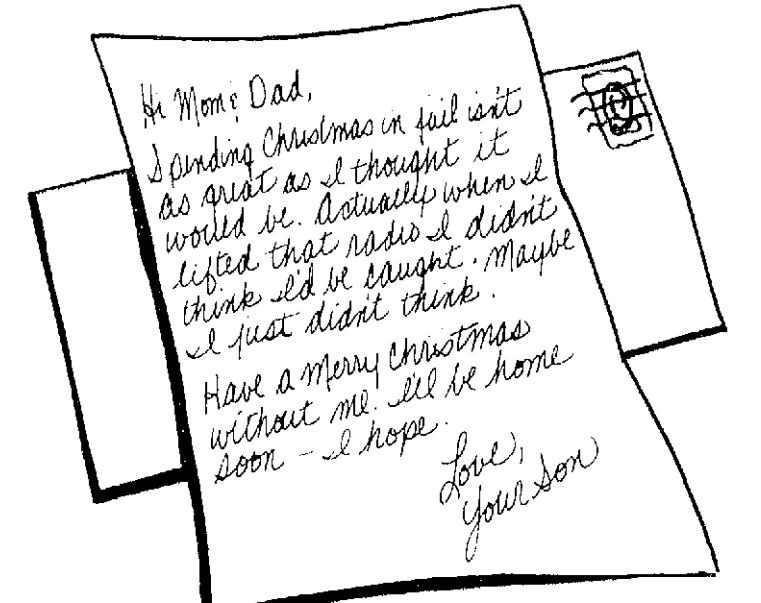 Hi Mom & Dad,
Spending Christmas in jail isn't
as great as I thought it
would be. Actually when I
lifted that radio I didn't
think I'd be caught. Maybe
I just didn't think.
Have a Merry Christmas
without me. I'll be home
soon – I hope.
Love,
Your Son